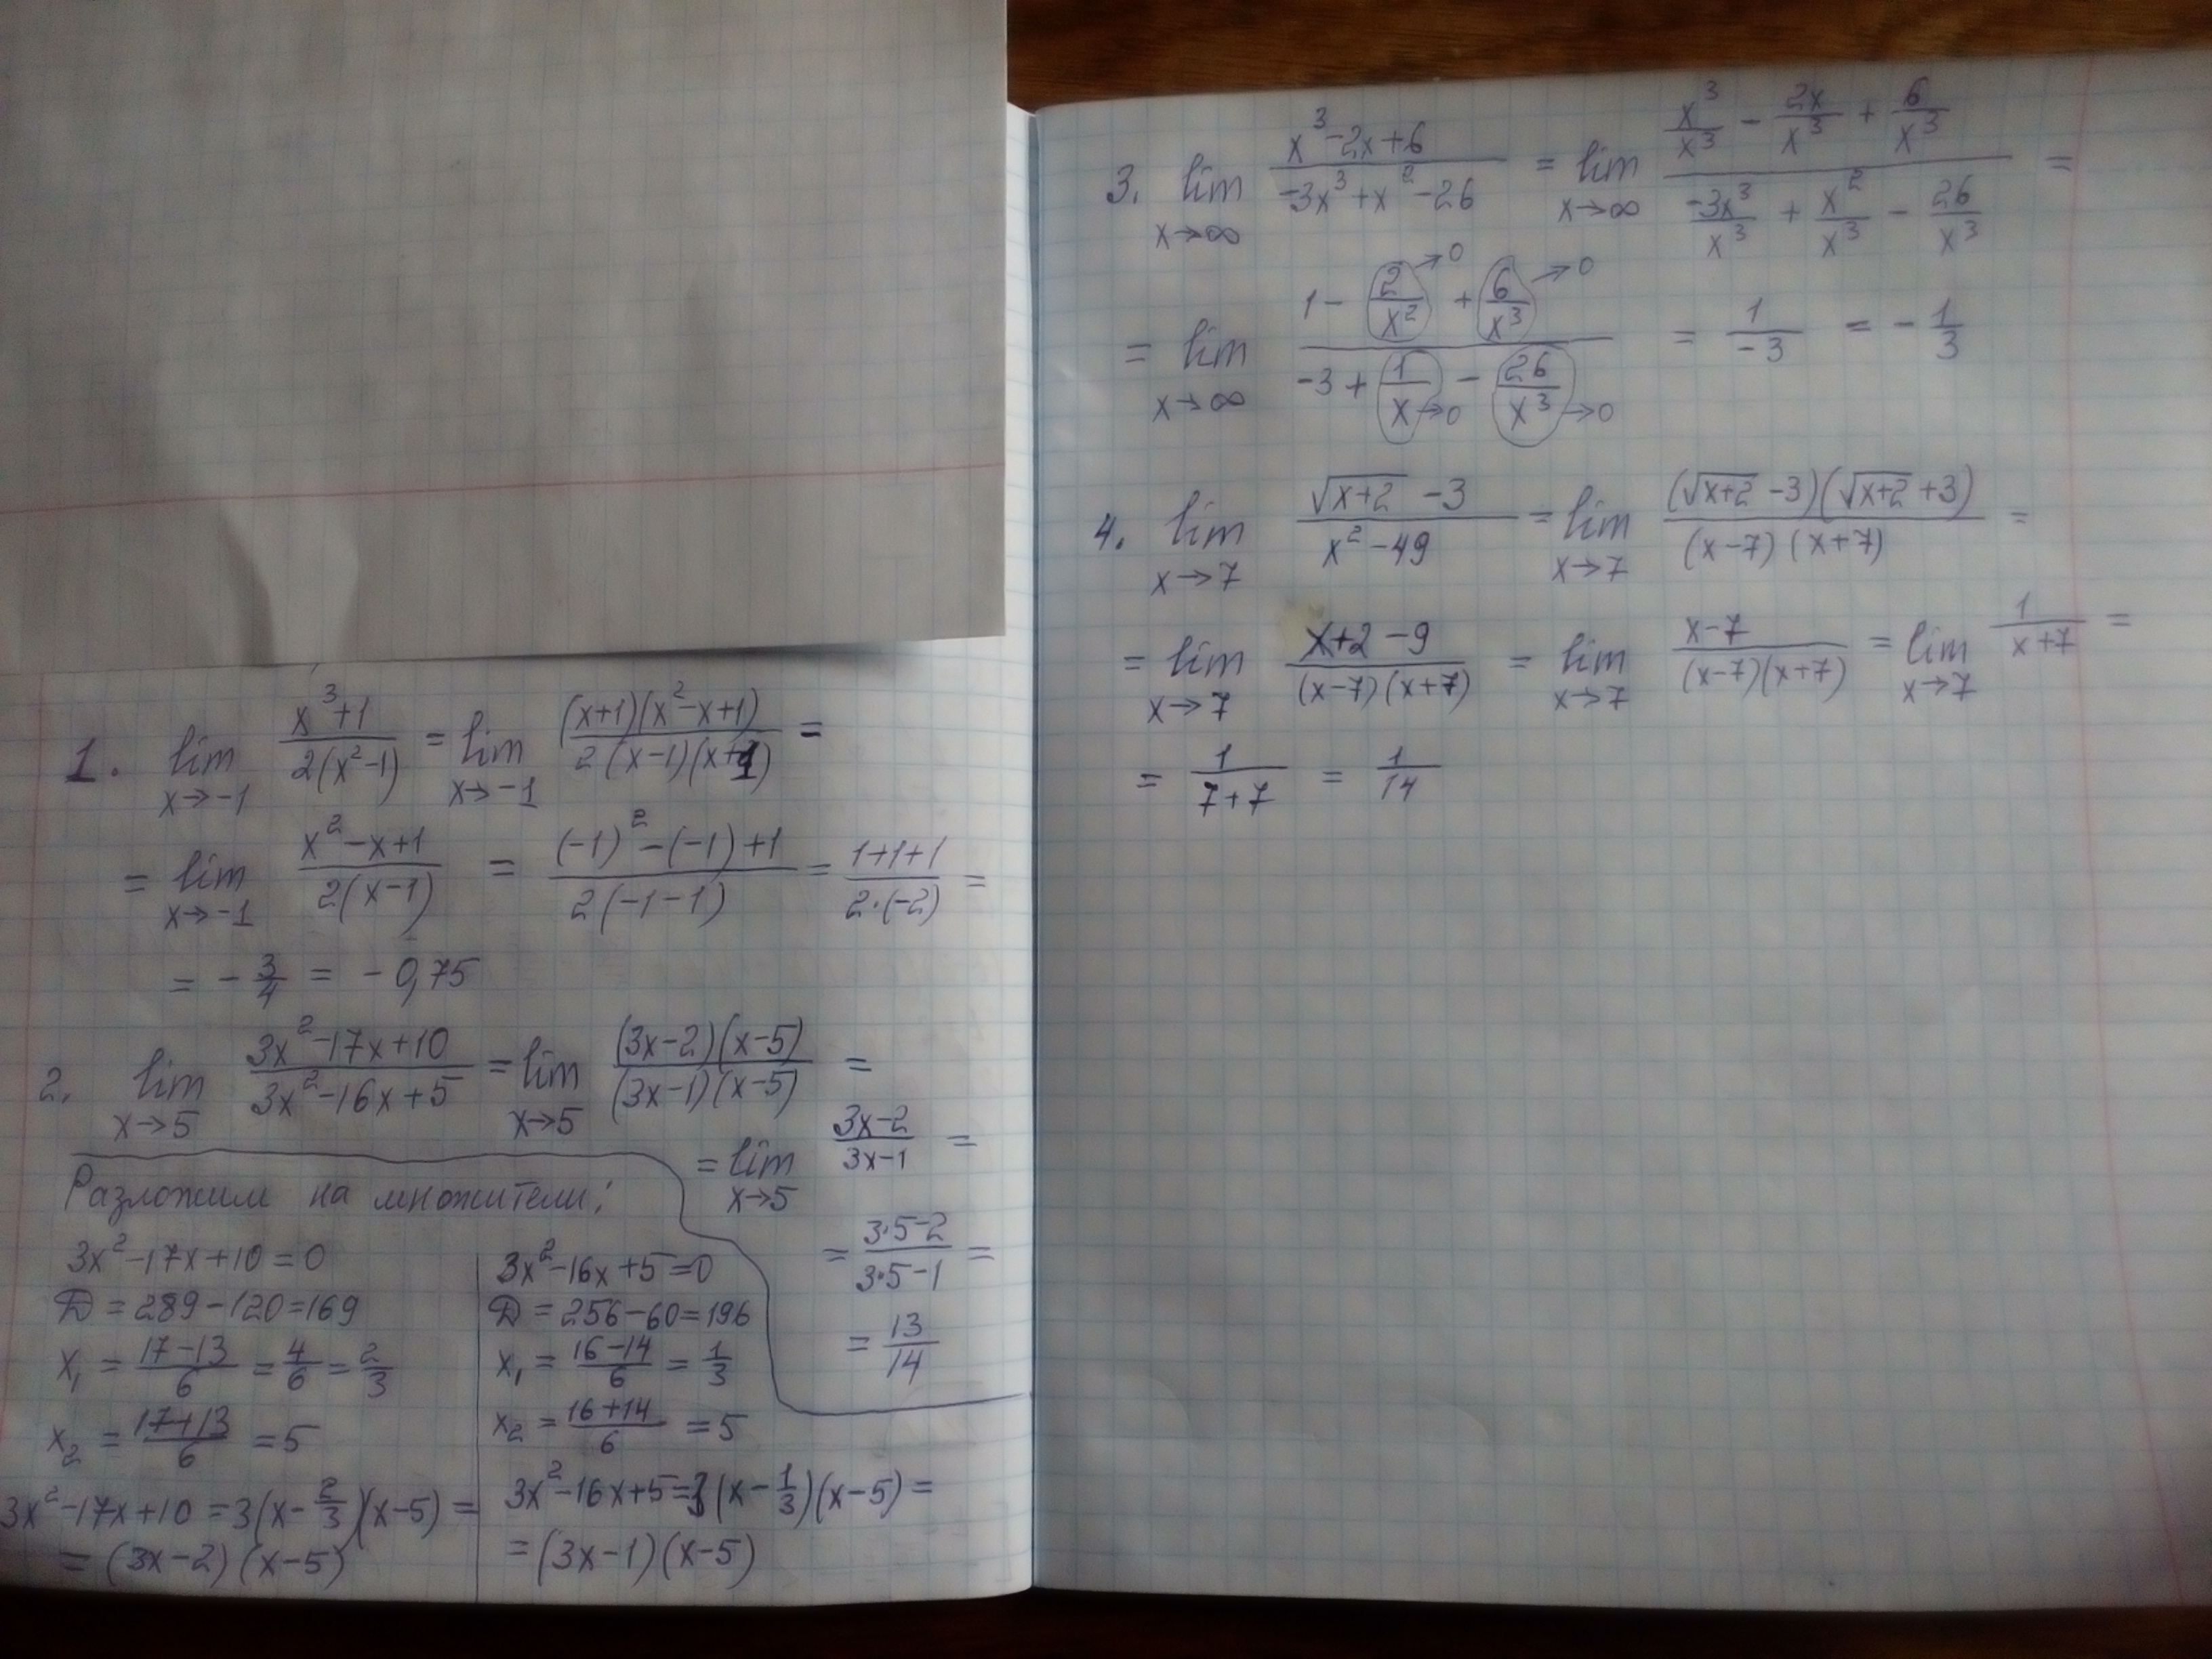 1. lim x→-1 (x³+1)/(2(x²-1)) = lim x→-1 ((x+1)(x²-x+1))/(2(x-1)(x+1)) =
= lim x→-1 (x²-x+1)/(2(x-1)) = ((-1)²-(-1)+1)/(2(-1-1)) = (1+1+1)/(2·(-2)) =
= -3/4 = -0,75
2. lim x→5 (3x²-17x+10)/(3x²-16x+5) = lim x→5 ((3x-2)(x-5))/((3x-1)(x-5)) =
= lim x→5 (3x-2)/(3x-1) =
= (3·5-2)/(3·5-1) =
= 13/14
Разложим на множители:
3x²-17x+10=0
Д = 289-120=169
x₁ = (17-13)/6 = 4/6 = 2/3
x₂ = (17+13)/6 = 5
3x²-17x+10 = 3(x-2/3)(x-5) =
= (3x-2)(x-5)
3x²-16x+5=0
Д = 256-60=196
x₁ = (16-14)/6 = 1/3
x₂ = (16+14)/6 = 5
3x²-16x+5=3(x-1/3)(x-5) =
= (3x-1)(x-5)
3. lim x→∞ (x³-2x+6)/(-3x³+x²-26) = lim x→∞ (x³/x³ - 2x/x³ + 6/x³)/(-3x³/x³ + x²/x³ - 26/x³) =
= lim x→∞ (1 - 2/x² →0 + 6/x³ →0)/(-3 + 1/x →0 - 26/x³ →0) = 1/-3 = -1/3
4. lim x→7 (√(x+2) -3)/(x²-49) = lim x→7 ((√(x+2) -3)(√(x+2) +3))/((x-7)(x+7)) =
= lim x→7 (x+2-9)/((x-7)(x+7)) = lim x→7 (x-7)/((x-7)(x+7)) = lim x→7 1/(x+7) =
= 1/(7+7) = 1/14